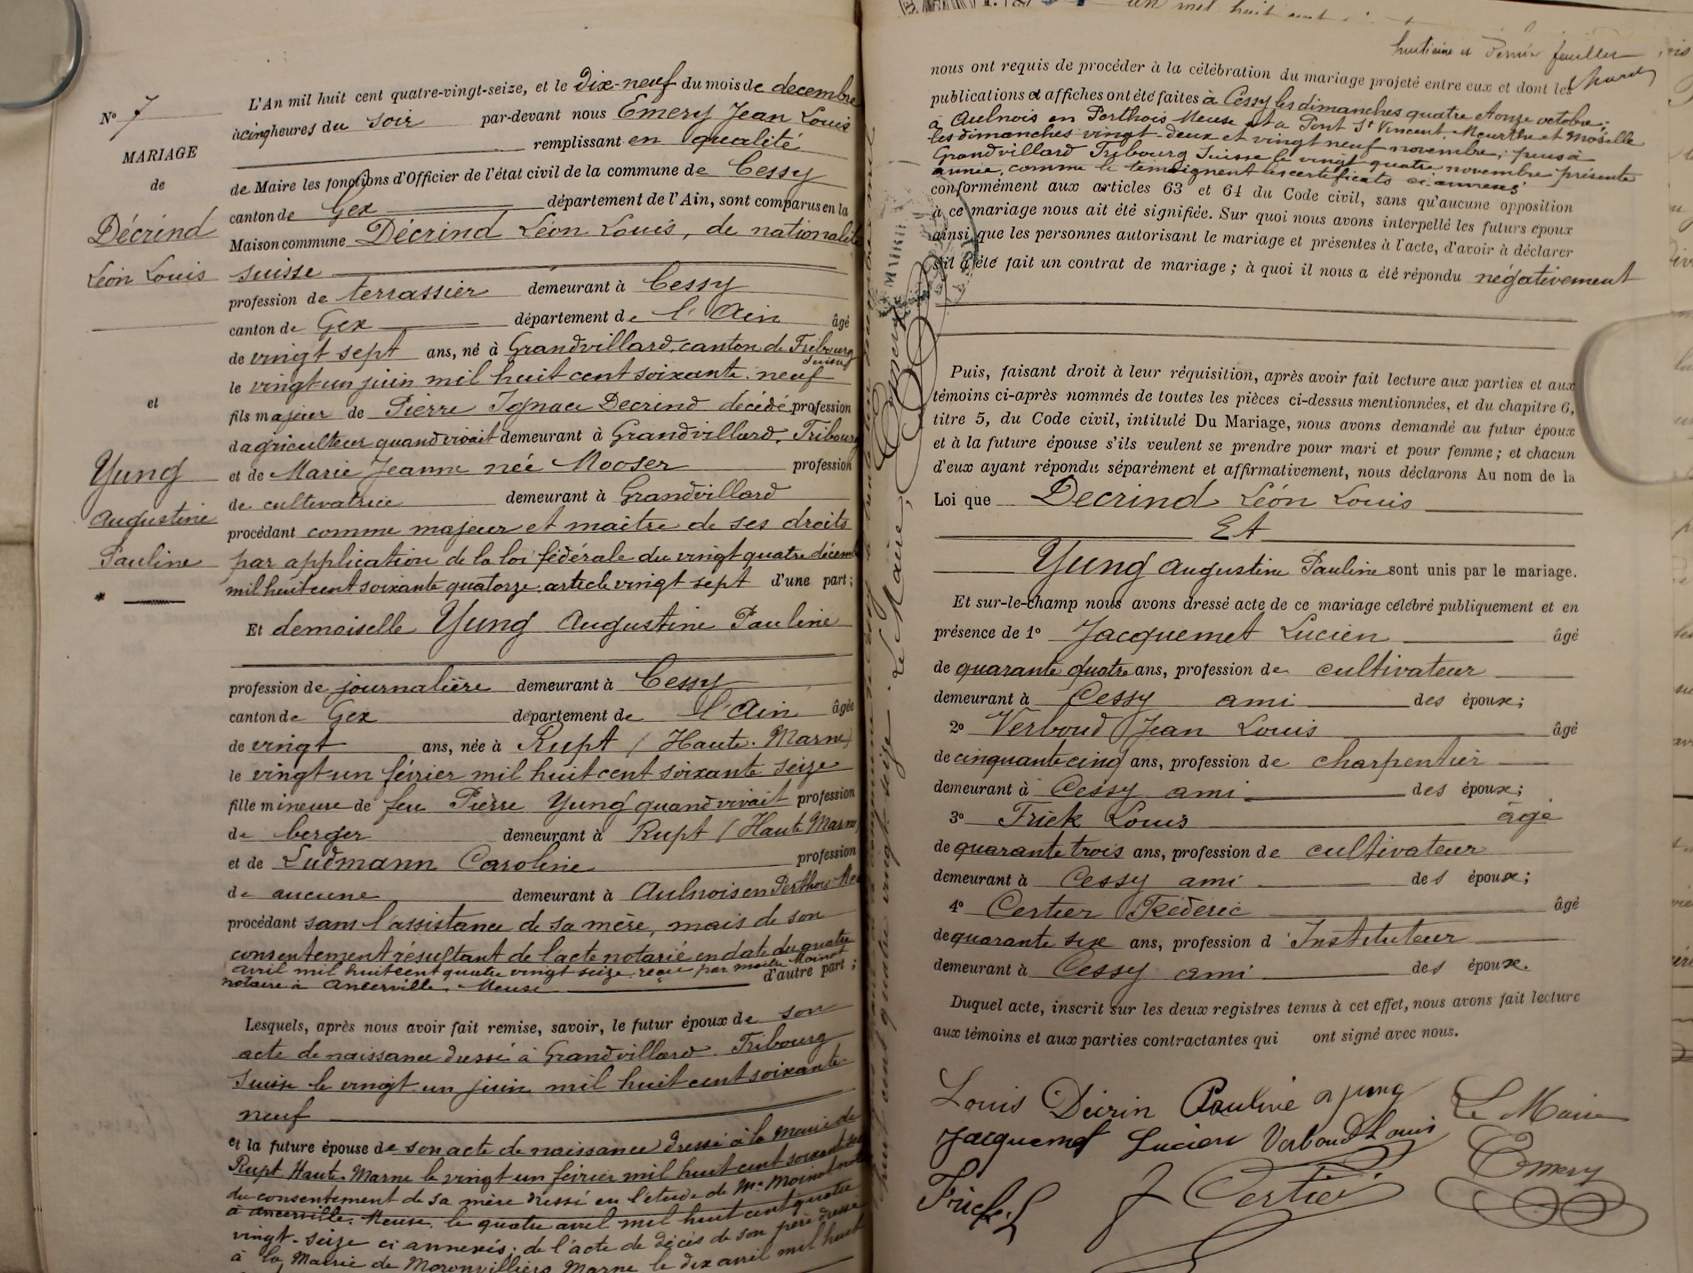 N° 7
MARIAGE
de
Décrind
Léon Louis
et
Yung
Augustine
Pauline
L'An mil huit cent quatre-vingt-seize, et le dix-neuf du mois de decembre
à cinq heures du soir par-devant nous Emery Jean Louis
remplissant en qualité
de Maire les fonctions d'Officier de l'état civil de la commune de Cessy
canton de Gex département de l'Ain, sont comparus en la
Maison commune Décrind Léon Louis, de nationalité
suisse
profession de terrassier demeurant à Cessy
canton de Gex département de l'Ain âgé
de vingt sept ans, né à Grandvillard, canton de Fribourg Suisse
le vingt un juin mil huit cent soixante-neuf
fils majeur de Pierre Ignace Decrind décédé profession
d'agriculteur quand vivait demeurant à Grandvillard, Fribourg
et de Marie Jeanne née Mooser profession
de cultivatrice demeurant à Grandvillard
procédant comme majeur et maître de ses droits
par application de la loi fédérale du vingt quatre décemb
mil huit cent soixante quatorze article vingt sept d'une part;
Et demoiselle Yung Augustine Pauline
profession de journalière demeurant à Cessy
canton de Gex département de l'Ain âgée
de vingt ans, née à Rupt (Haute-Marne)
le vingt un février mil huit cent soixante seize
fille mineure de feu Pierre Yung quand vivait profession
de berger demeurant à Rupt (Haute Marne)
et de Ludmann Caroline profession
de aucune demeurant à Aulnois en Perthois
procédant sans l'assistance de sa mère, mais de son
consentement résultant de l'acte notarié en date du quatre
avril mil huit cent quatre vingt seize, reçu par maître Moinot
notaire à Ancerville, Meuse d'autre part;
Lesquels, après nous avoir fait remise, savoir, le futur époux de son
acte de naissance dressé à Grandvillard. Fribourg
Suisse le vingt un juin mil huit cent soixante-
neuf
et la future épouse de son acte de naissance dressé à la Mairie de
Rupt Haute-Marne le vingt un février mil huit cent soixante
du consentement de sa mère dressé en l'étude de Me Moinot
à Ancerville, Meuse, le quatre avril mil huit cent quatre
vingt-seize ci annexés; de l'acte de décès de son père dressé
à la Mairie de Moronvilliers Marne le dix avril mil huit
huitième et dernier feuillet
nous ont requis de procéder à la célébration du mariage projeté entre eux et dont les
publications et affiches ont été faites à Cessy les dimanches quatre et onze octobre;
à Aulnois en Perthois Meuse et à Pont St Vincent Meurthe et Moselle
les dimanches vingt-deux et vingt neuf novembre; puis à
Grandvillard Fribourg Suisse le vingt quatre novembre présente
année, comme le témoignent les certificats ci-annexés
conformément aux articles 63 et 64 du Code civil, sans qu'aucune opposition
à ce mariage nous ait été signifiée. Sur quoi nous avons interpellé les futurs époux
ainsi que les personnes autorisant le mariage et présentes à l'acte, d'avoir à déclarer
s'il a été fait un contrat de mariage; à quoi il nous a été répondu négativement
Puis, faisant droit à leur réquisition, après avoir fait lecture aux parties et aux
témoins ci-après nommés de toutes les pièces ci-dessus mentionnées, et du chapitre 6,
titre 5, du Code civil, intitulé Du Mariage, nous avons demandé au futur époux
et à la future épouse s'ils veulent se prendre pour mari et pour femme; et chacun
d'eux ayant répondu séparément et affirmativement, nous déclarons Au nom de la
Loi que Decrind Léon Louis
Et
Yung Augustine Pauline sont unis par le mariage.
Et sur-le-champ nous avons dressé acte de ce mariage célébré publiquement et en
présence de 1° Jacquemet Lucien âgé
de quarante quatre ans, profession de cultivateur
demeurant à Cessy ami des époux;
2° Verboud Jean Louis âgé
de cinquante cinq ans, profession de charpentier
demeurant à Cessy ami des époux;
3° Frick Louis âgé
de quarante trois ans, profession de cultivateur
demeurant à Cessy ami des époux;
4° Certier Frédéric âgé
de quarante six ans, profession d'Instituteur
demeurant à Cessy ami des époux.
Duquel acte, inscrit sur les deux registres tenus à cet effet, nous avons fait lecture
aux témoins et aux parties contractantes qui ont signé avec nous.
Louis Décrin Pauline Yung Le Maire
Jacquemet Lucien Verboud Louis Emery
Frick L F Certier